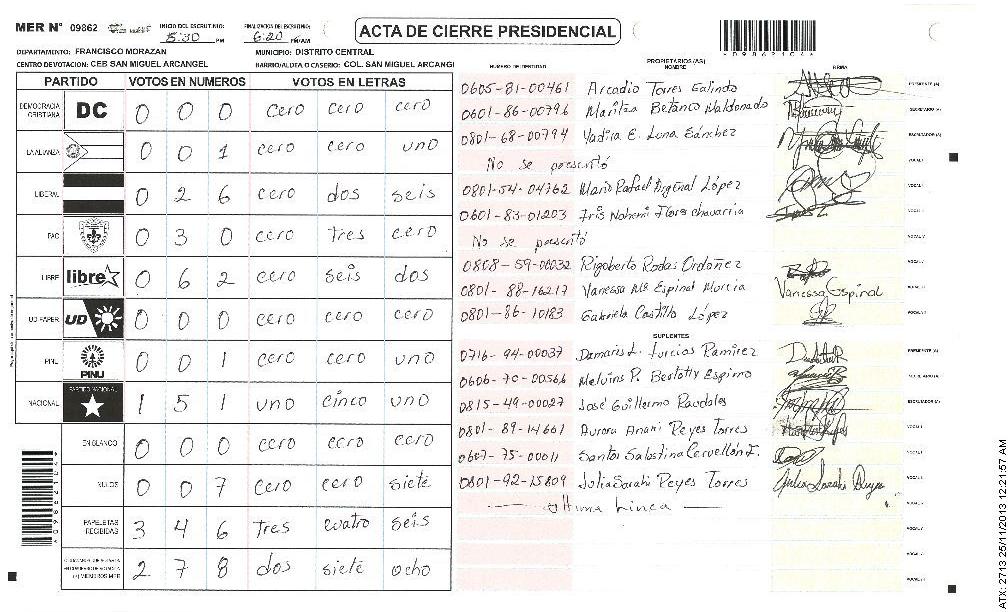 MER N° 09862 INICIO DEL ESCRUTINIO: 5:30 PM FINALIZACION DEL ESCRUTINIO: 6:20 PM/AM
ACTA DE CIERRE PRESIDENCIAL
*09862104*
DEPARTAMENTO: FRANCISCO MORAZAN MUNICIPIO: DISTRITO CENTRAL
CENTRO DE VOTACION: CEB SAN MIGUEL ARCANGEL BARRIO/ALDEA O CASERIO: COL. SAN MIGUEL ARCANGEL
PARTIDO VOTOS EN NUMEROS VOTOS EN LETRAS
DEMOCRACIA CRISTIANA DC 0 0 0 cero cero cero
LA ALIANZA 0 0 1 cero cero uno
LIBERAL 0 2 6 cero dos seis
PAC 0 3 0 cero tres cero
LIBRE libre 0 6 2 cero seis dos
UD FAPER UD 0 0 0 cero cero cero
PINU PINU 0 0 1 cero cero uno
NACIONAL PARTIDO NACIONAL 1 5 1 uno cinco uno
EN BLANCO 0 0 0 cero cero cero
NULOS 0 0 7 cero cero siete
PAPELETAS RECIBIDAS 3 4 6 tres cuatro seis
2 7 8 dos siete ocho
(+) MIEMBROS MER
NUMERO DE IDENTIDAD PROPIETARIOS(AS) NOMBRE FIRMA
0605-81-00461 Arcadio Torres Galindo PRESIDENTE (A)
0601-86-00796 Maritza Betanco Maldonado SECRETARIO (A)
0801-68-00794 Yadira E. Luna Sánchez ESCRUTADOR (A)
No se presentó VOCAL I
0801-54-04762 Mario Rafael Argeñal López
0601-83-01203 Iris Nohemi Flores chavarria
No se presentó
0808-59-00032 Rigoberto Rodas Ordoñez
0801-88-16217 Vanessa Mª Espinal Murcia Vanessa Espinal
0801-86-10183 Gabriela Castillo López
SUPLENTES
0716-94-00037 Damaris L. Turcios Ramirez PRESIDENTE (A)
0606-70-00566 Melvins P. SECRETARIO (A)
0815-49-00027 José Guillermo Raudales ESCRUTADOR (A)
0801-89-14661 Aurora Anahi Reyes Torres
0607-75-00011 Santos
0801-92-15809 Julia Sarahi Reyes Torres Julia Sarahi Reyes
Ultima Linea
ATX: 2713 25/11/2013 12:21:57 AM